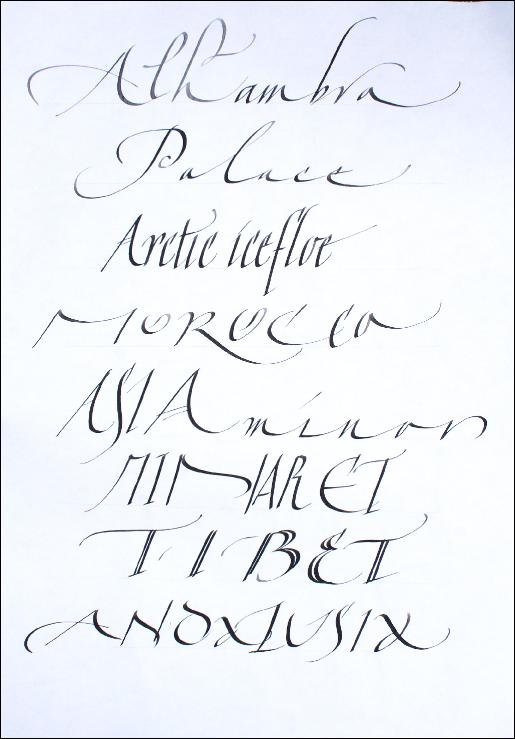 Alhambra
Palace
Arctic icefloe
MOROCCo
ASIA minor
MINARET
TIBET
ANDALUSIA